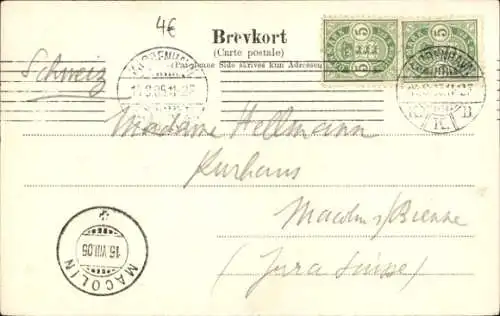 4€
Brevkort
(Carte postale)
(Paa denne Side skrives kun Adressen)
Schweiz
KJØBENHAVN
5 5
DANMARK
Madame Hellmann
Kurhaus
Macolin s/Bienne
(Jura Suisse)
MACOLIN
15.VIII.05